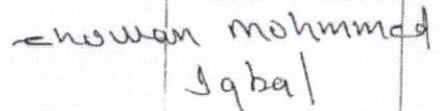 chowan mohmmed
Iqbal